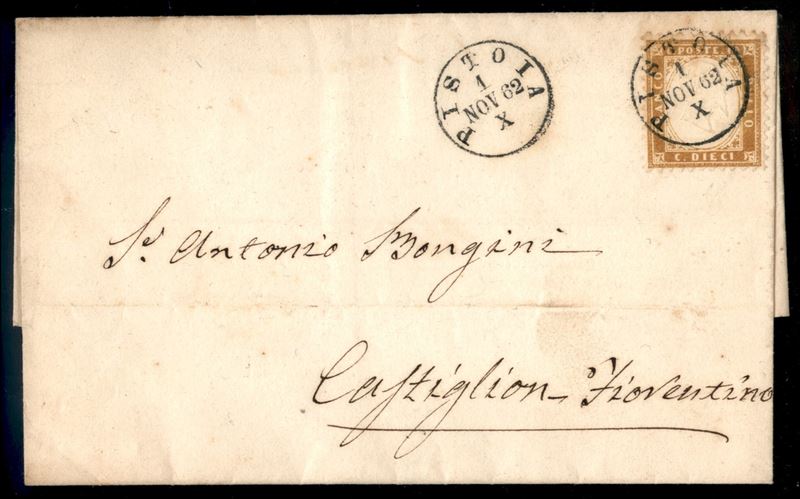 PISTOIA
1
NOV 62
X
PISTOIA
1
NOV 62
X
POSTE
C. DIECI
Sr. Antonio Bongini
Castiglion Fiorentino